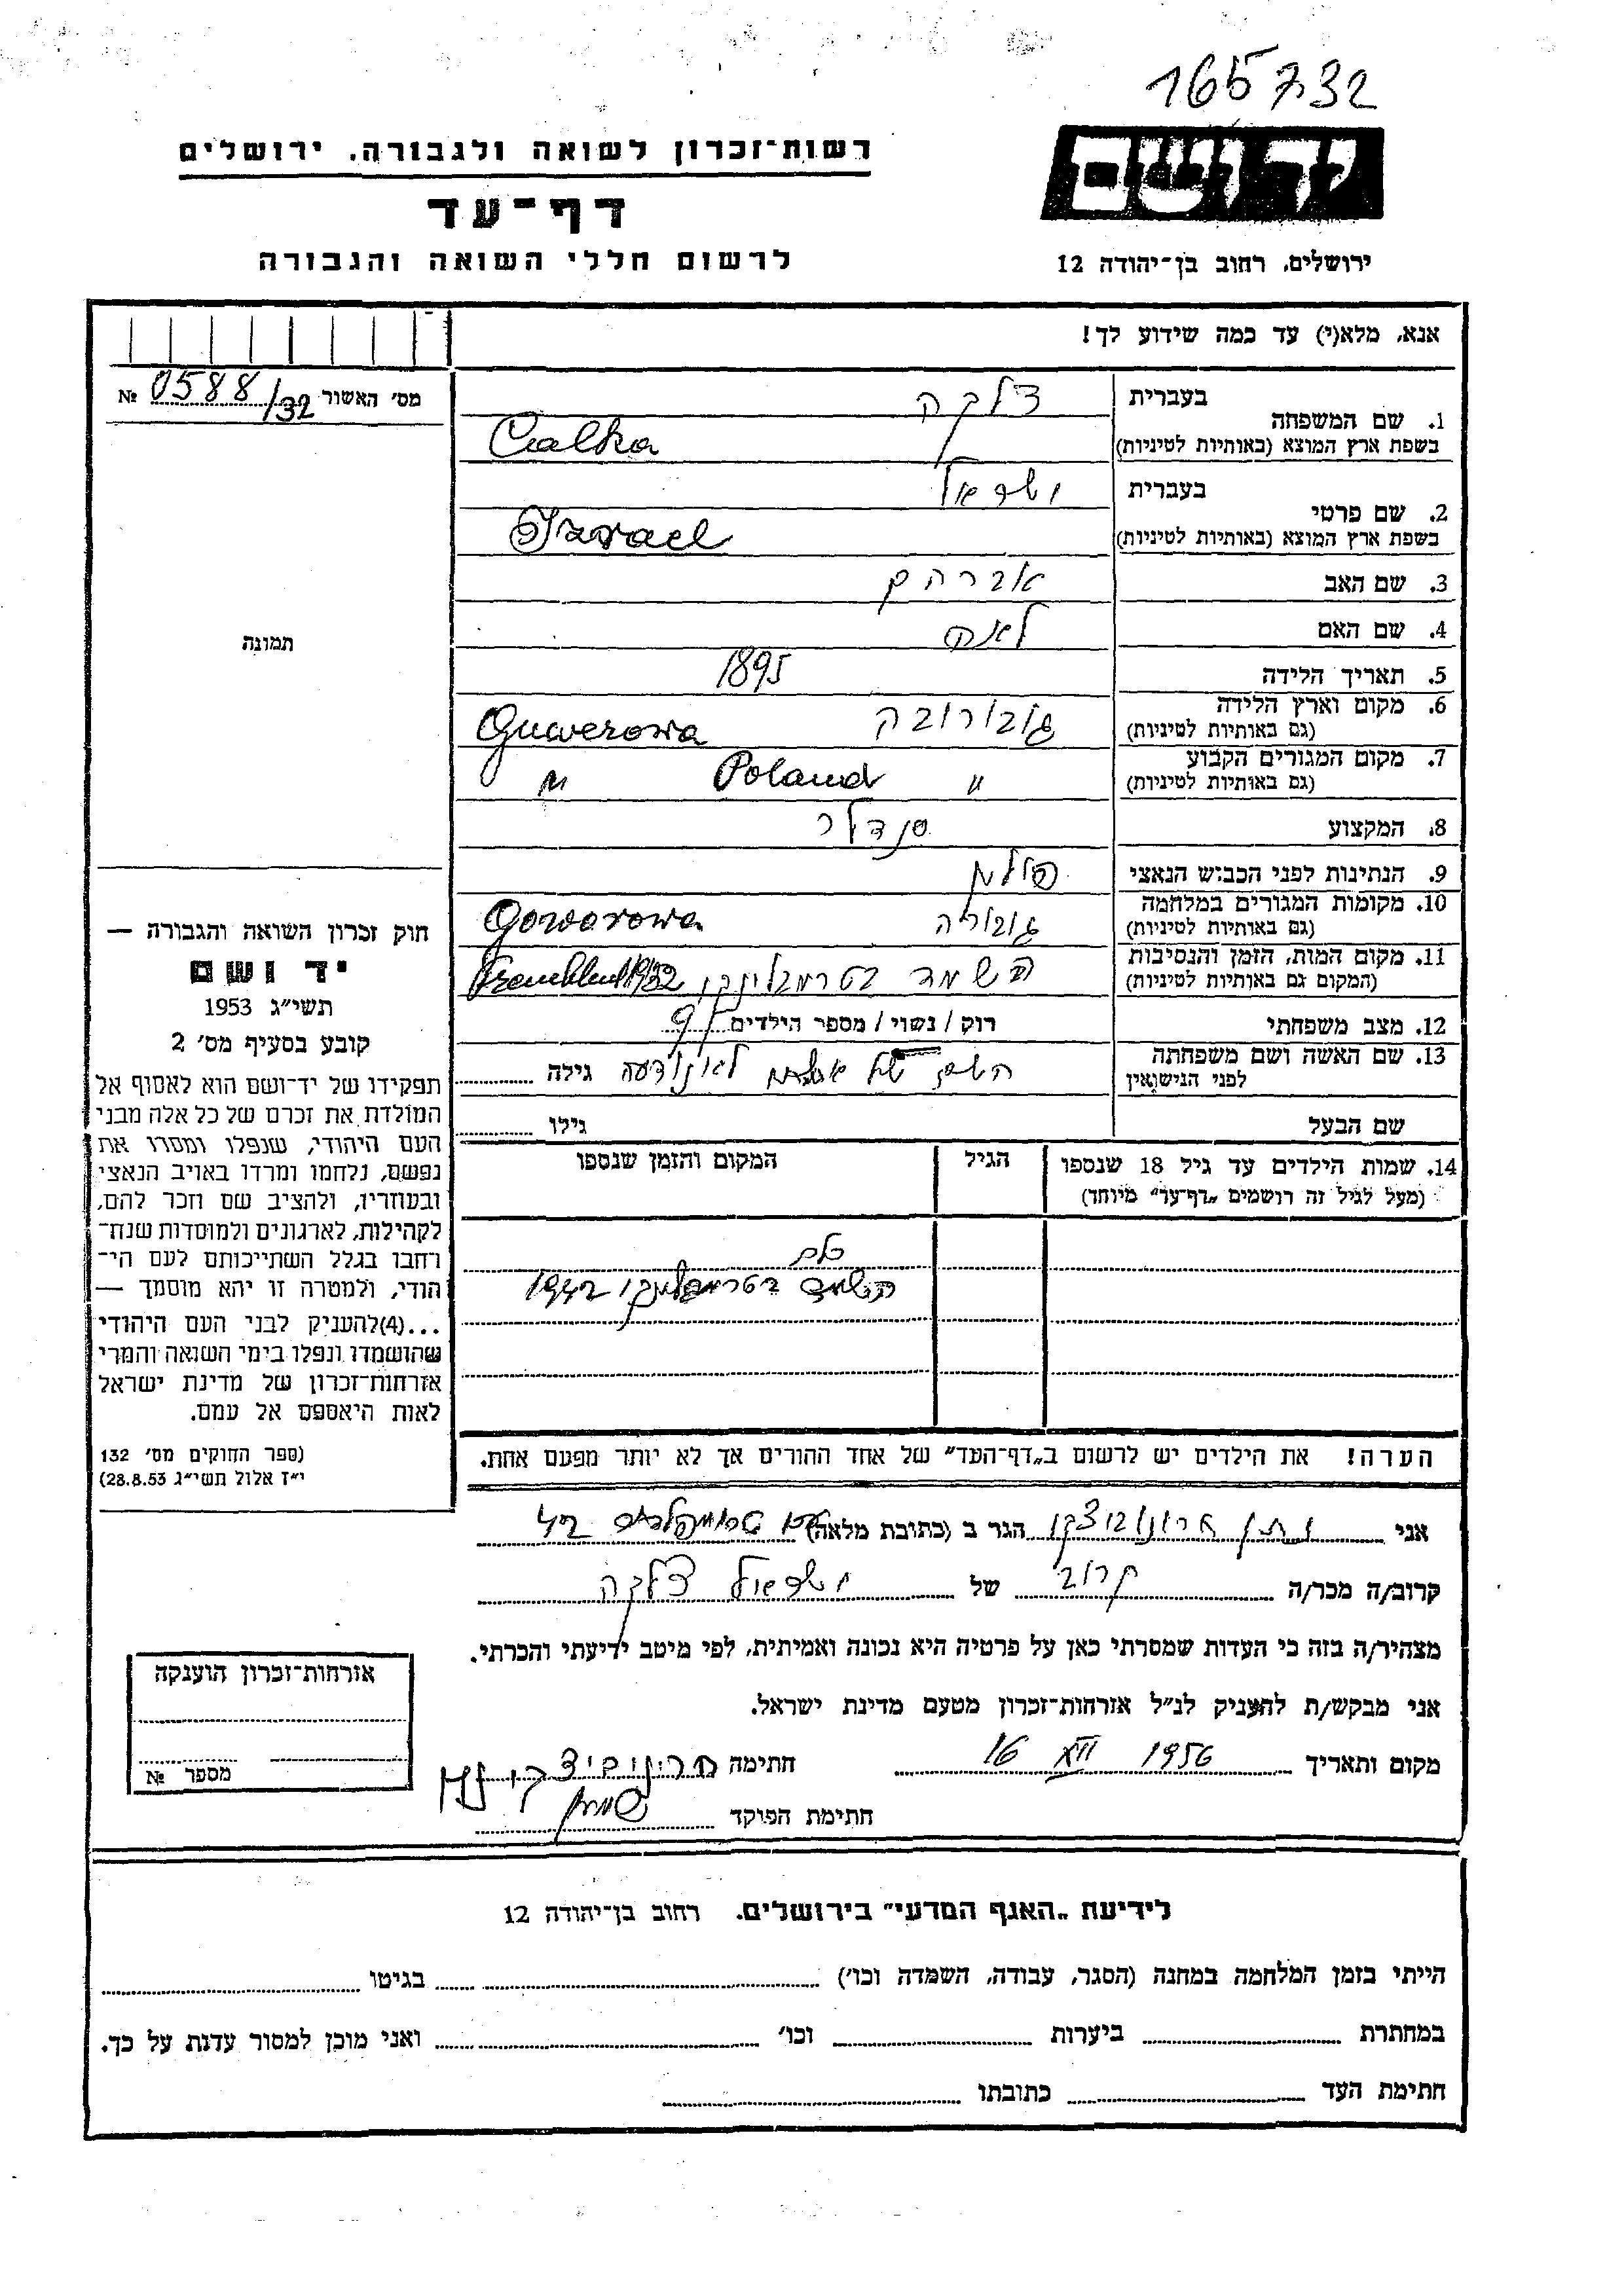 165732
רשות-זכרון לשואה ולגבורה, ירושלים
ידושם
דף-עד
לרשום חללי השואה והגבורה
ירושלים, רחוב בן-יהודה 12
אנא, מלא(י) עד כמה שידוע לך!
מס' האשור № 0588/32
תמונה
חוק זכרון השואה והגבורה —
יד ושם
תשי״ג 1953
קובע בסעיף מס' 2
תפקידו של יד-ושם הוא לאסוף אל
המולדת את זכרם של כל אלה מבני
העם היהודי, שנפלו ומסרו את
נפשם, נלחמו ומרדו באויב הנאצי
ובעוזריו, ולהציב שם וזכר להם,
לקהילות, לארגונים ולמוסדות שנח-
רחבו בגלל השתייכותם לעם הי-
הודי, ולמטרה זו יהא מוסמך —
...(4)להעניק לבני העם היהודי
שהושמדו ונפלו בימי השואה והמרי
אזרחות-זכרון של מדינת ישראל
לאות היאספם אל עמם.
(ספר החוקים מס' 132
י״ז אלול תשי״ג 28.8.53)
1. שם המשפחה בעברית צלקה
בשפת ארץ המוצא (באותיות לטיניות) Calka
2. שם פרטי בעברית ישראל
בשפת ארץ המוצא (באותיות לטיניות) Israel
3. שם האב אברהם
4. שם האם לאה
5. תאריך הלידה 1895
6. מקום וארץ הלידה (גם באותיות לטיניות) גוברובה Guwerowa
7. מקום המגורים הקבוע (גם באותיות לטיניות) " Poland "
8. המקצוע סנדלר
9. הנתינות לפני הכבוש הנאצי פולין
10. מקומות המגורים במלחמה (גם באותיות לטיניות) Goworowa
11. מקום המות, הזמן והנסיבות (המקום גם באותיות לטיניות) השמד בטרמבלינקי
12. מצב משפחתי רוק / נשוי / מספר הילדים 9
13. שם האשה ושם משפחתה לפני הנישואין גילה
שם הבעל גילו
14. שמות הילדים עד גיל 18 שנספו הגיל המקום והזמן שנספו
(מעל לגיל זה רושמים „דף-עד" מיוחד)
כלם
השמד בטרמבלינקי 1942
הערה! את הילדים יש לרשום ב„דף-העד" של אחד ההורים אך לא יותר מפעם אחת.
אני הגר ב (כתובת מלאה) 42
קרוב/ה מכר/ה קרוב של ישראל צלקה
מצהיר/ה בזה כי העדות שמסרתי כאן על פרטיה היא נכונה ואמיתית, לפי מיטב ידיעתי והכרתי.
אני מבקש/ת להעניק לנ״ל אזרחות-זכרון מטעם מדינת ישראל.
מקום ותאריך 16 XII 1956 חתימה
חתימת הפוקד
אזרחות-זכרון הוענקה
מספר №
לידיעת „האגף המדעי" בירושלים. רחוב בן-יהודה 12
הייתי בזמן המלחמה במחנה (הסגר, עבודה, השמדה וכו') בגיטו
במחתרת ביערות וכו' ואני מוכן למסור עדות על כך.
חתימת העד כתובתו